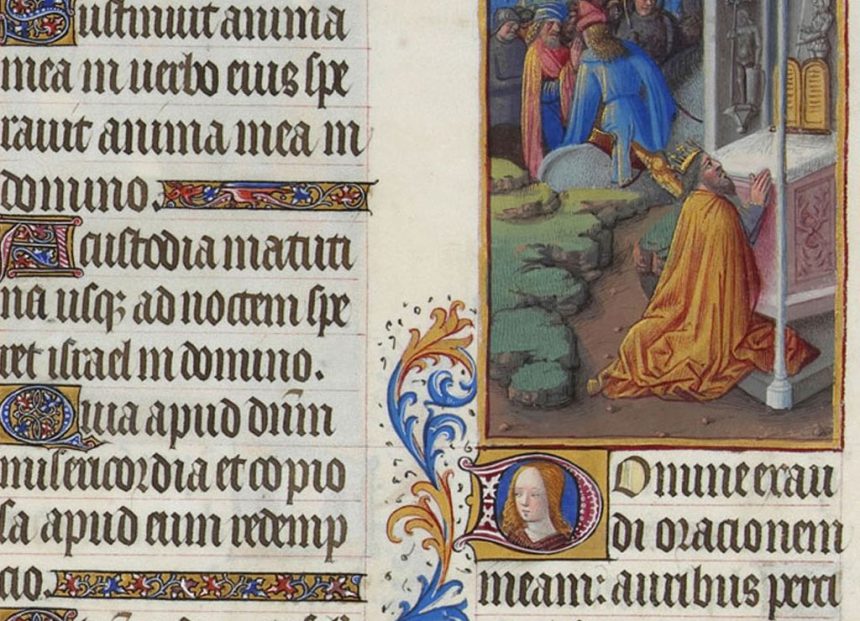 Sustinuit anima
mea in verbo eius spe
ravit anima mea in
domino.
A custodia matuti
na usq; ad noctem spe
ret israel in domino.
Quia apud dn̄m
misericordia et copio
sa apud eum redemp
cio.
Domine exau
di oracionem
meam: auribus perci